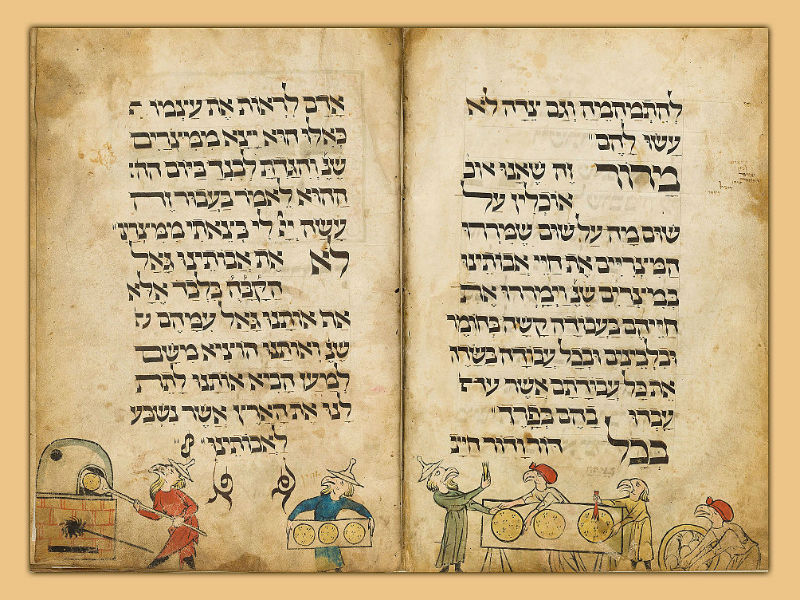 להתמהמה וגם צדה לא
עשו להם
מרור זה שאנו אוכ
אוכלין על
שום מה על שום שמררו
המיצריים את חיי אבותינו
במיצרים שנ וימררו את
חייהם בעבודה קשה בחומר
ובלבינים ובכל עבודה בשדה
את כל עבודתם אשר
עבדו בהם בפרך
בכל דור ודור
אדם לראות את עצמו
כאלו הוא יצא ממיצרים
שנ והגדת לבנך ביום הה
ההוא לאמר בעבור זה
עשה לי בצאתי
לא את אבותינו גאל
הקבה בלבד אלא
את אותנו גאל עמהם
שנ ואותנו הוציא משם
למען הביא אותנו לתת
לנו את הארץ אשר נשבע
לאבותינו